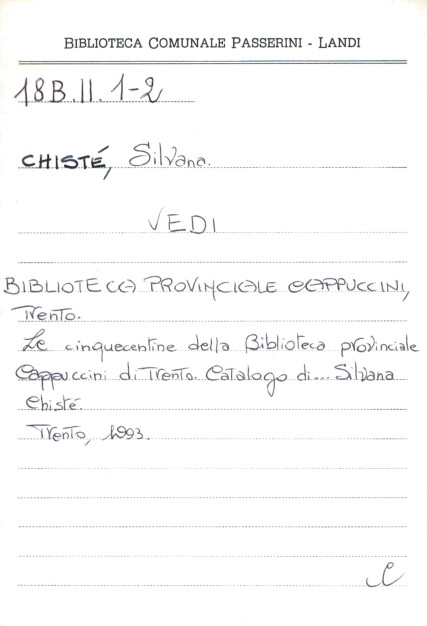 BIBLIOTECA COMUNALE PASSERINI - LANDI
18B.II. 1-2
CHISTÉ, Silvana.
VEDI
BIBLIOTECA PROVINCIALE CAPPUCCINI,
Trento.
Le cinquecentine della Biblioteca provinciale
Cappuccini di Trento. Catalogo di... Silvana
Chisté.
Trento, 1993.
C